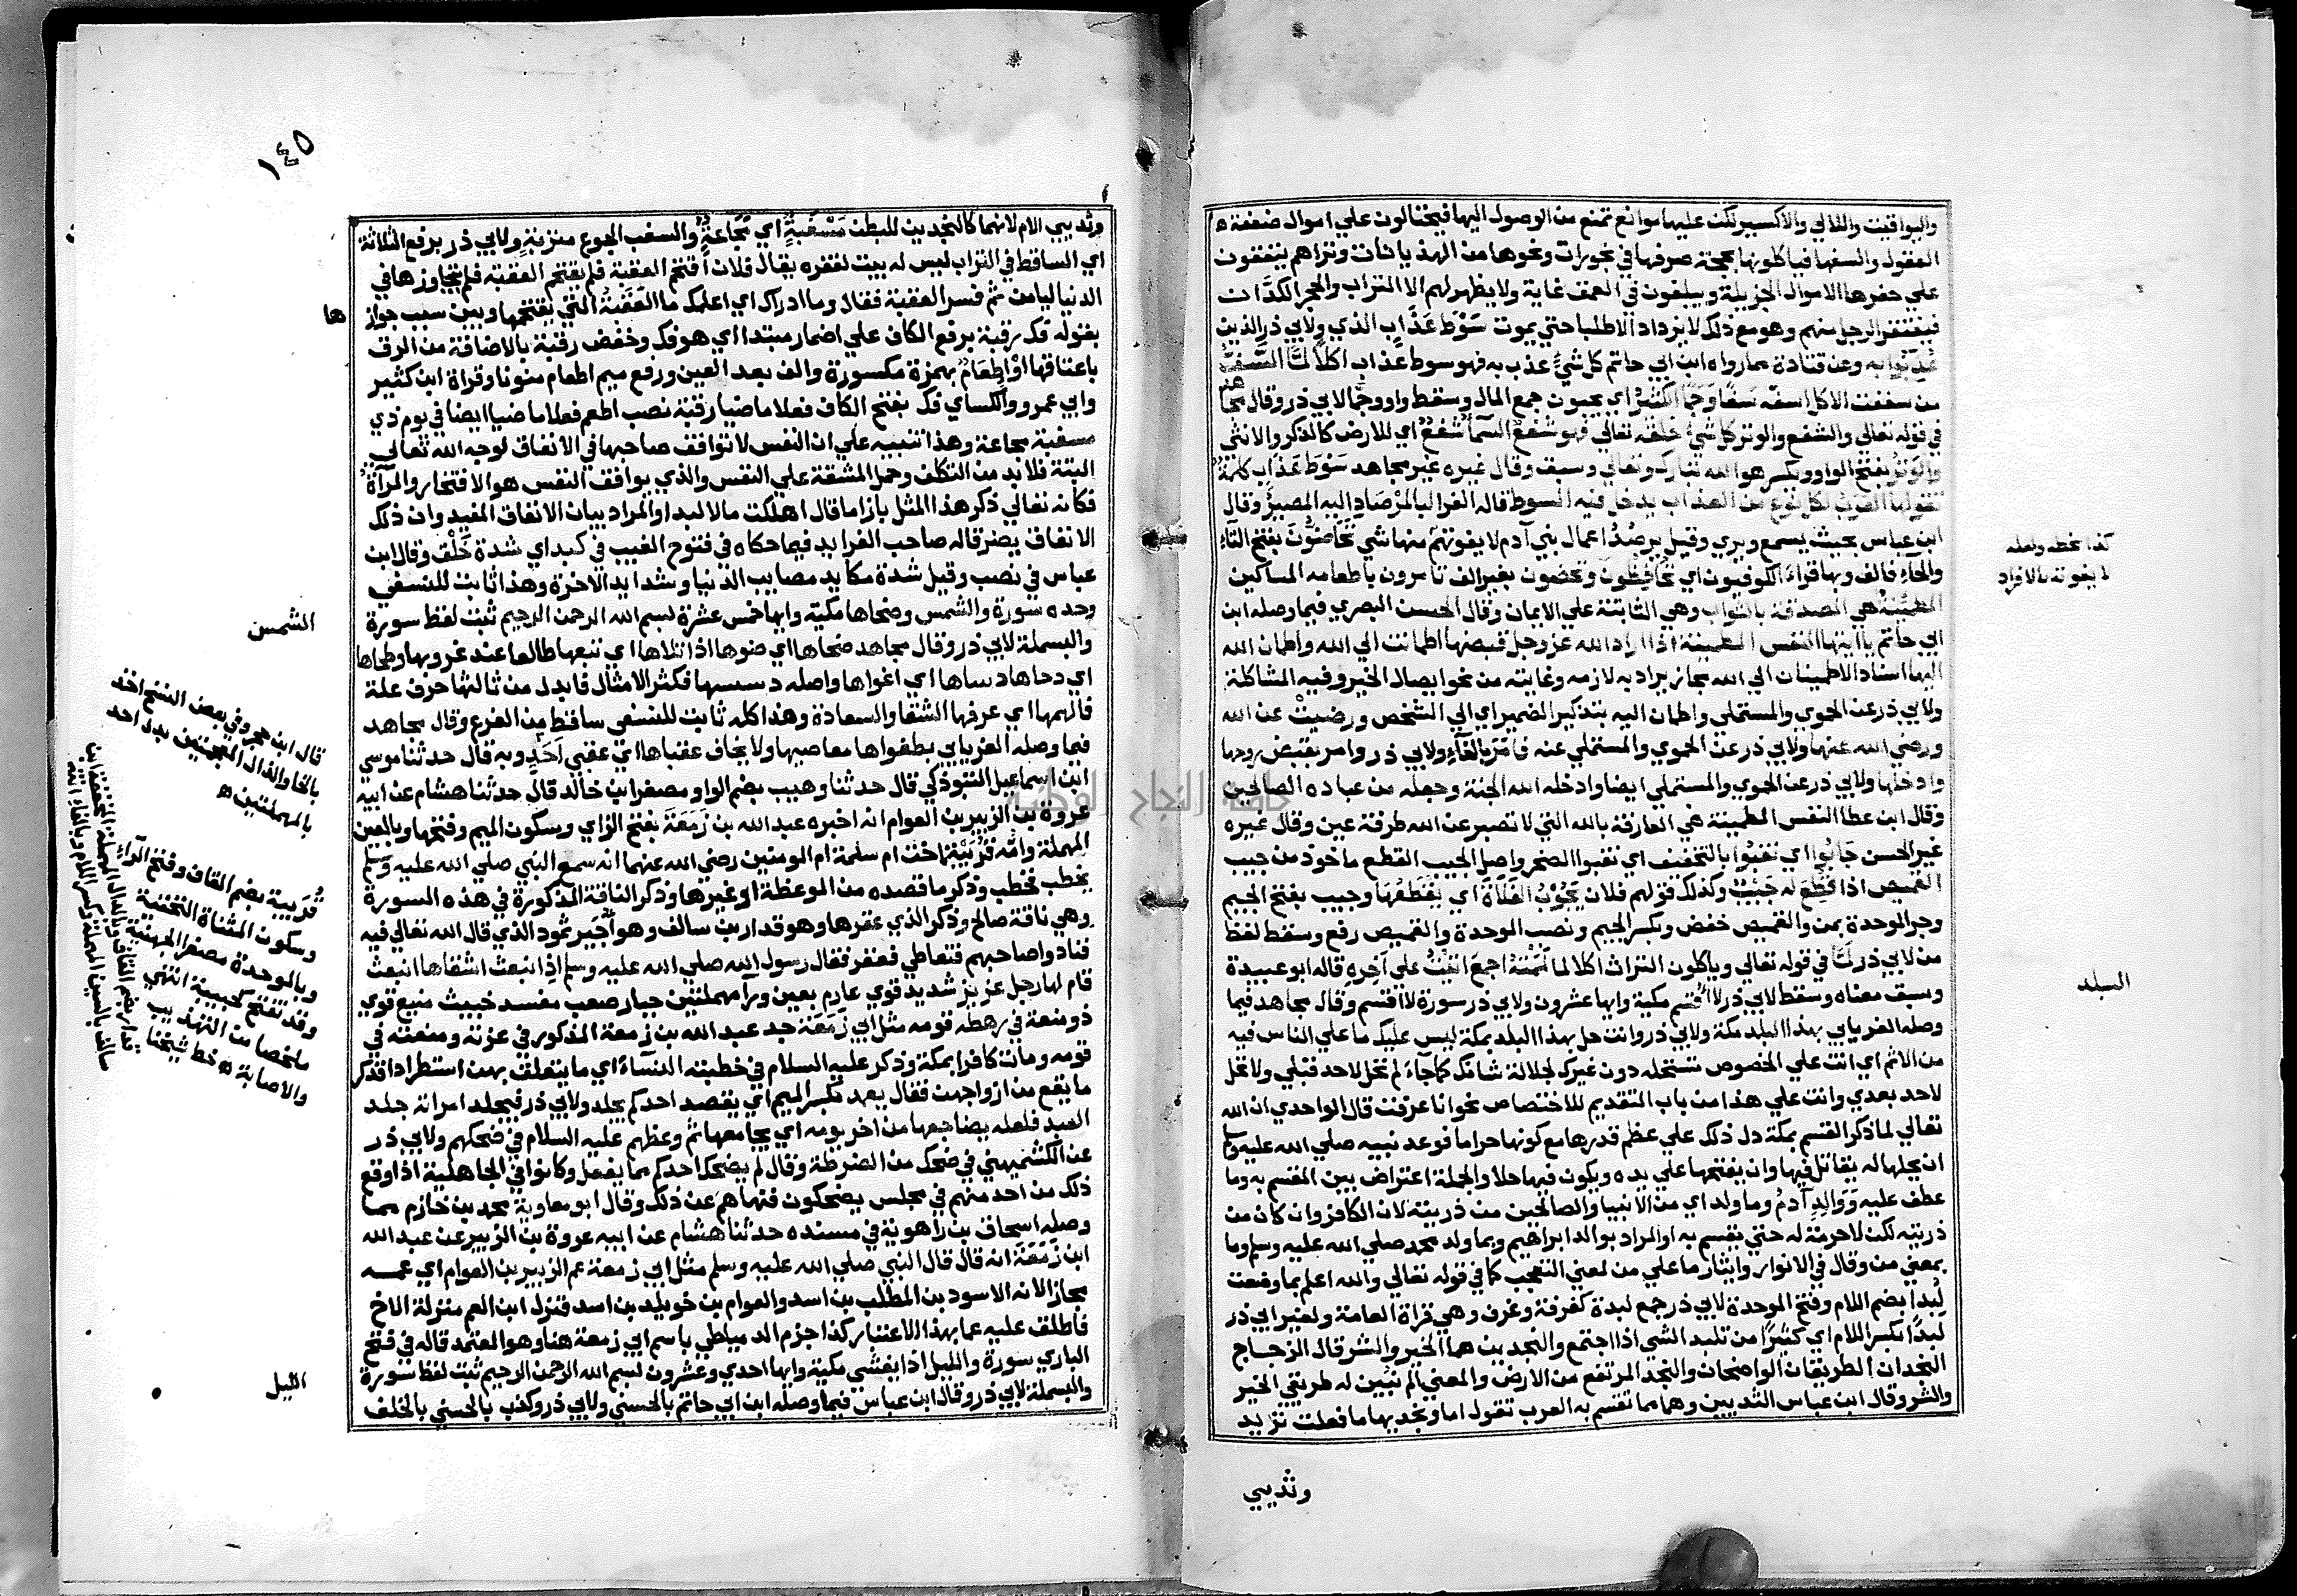 واليواقيت واللآلي والاكسير لكن عليها موانع تمنع من الوصول اليها فيحتالون علي اموال ضعفة
العقول والسفها فياكلونها بحجة صرفها في بخورات ونحوها من الهذيانات وتراهم ينفقون
علي حفرها الاموال الجزيلة ويبلغون في العمق غاية ولا يظهر لهم الا التراب والحجر الكدان
فيفتقر الرجل منهم وهو مع ذلك لا يزداد الا طلبا حتي يموت سَوْطَ عَذَابٍ الذي ولابي ذر الذين
عُذِّبُوا به وعن قتادة مما رواه ابن ابي حاتم كل شيء عذب به فهو سوط عذاب اكلًا لمًّا السَّفُّ
من سففت الاكل اسفّه سفًّا وَجَمًّا الكثير اي يحبون جمع المال وسقط واو وجمّا لابي ذر وقال مجاهد
في قوله تعالي والشفع والوتر كل شيء خلقه تعالي فهو شفع السمآ شفعٌ اي للارض كالذكر والانثي
والوترُ بفتح الواو ويكسر هو الله تبارك وتعالي وسبق وقال غيره غير مجاهد سَوْطَ عَذَابٍ كلمةٌ
تقولها العرب لكل نوع من العذاب يدخل فيه السوط قاله الفرا لبالمرْصَادِ اليه المصيرُ وقال
ابن عباس بحيث يسمع ويري وقيل يرصُدُ اعمال بني آدم لا يفوتهم منها شي تَحَاضُّونَ بفتح التّاء
والحاء فالف وبها قراة الكوفيون اي تحافظون وتحضون بغير الف تامرون باطعامه المساكين
المطمئِنّة هي المصدقة بالثواب وهي الثابتة علي الايمان وقال الحسن البصري فيما وصله ابن
ابي حاتم يا ايتها النفس المطمينة اذا اراد الله عز وجل قبضها اطمانت الي الله واطمان الله
اليها اسناد الاطمينان الي الله مجاز يراد به لازمه وغايته من نحو ايصال الخير وفيه المشاكلة
ولابي ذر عن الحموي والمستملي واطمان اليه بتذكير الضمير اي الي الشخص ورضيتْ عن الله
ورضي الله عنها ولابي ذر عن الحموي والمستملي عنه فامَرَ بالفآءِ ولابي ذر وامر بقبض روحها
وادخلها ولابي ذر عن الحموي والمستملي ايضا وادخله الله الجنة وجعله من عباده الصالحين
وقال ابن عطا النفس المطمينة هي العارفة بالله التي لا تصبر عن الله طرفة عين وقال غيره
غير الحسن جَابُوا اي نقبُوا بالتخفيف اي نقبوا الصخر واصل الجيب القطع ماخوذ من جيب
القميص اذا قُطِعَ له جَيْبٌ وكذلك قولهم فلان يَجُوْبُ الفَلَاةَ اي يَقْطَعُهَا وجيب بفتح الجيم
وجر الموحدة بمن والقميص خفض وبكسر الجيم ونصب الموحدة والقميص رفع وسقط لفظ
من لابي ذر لمَّا في قوله تعالي وياكلون التراث اكلا لما لَمَمْتُهُ اجمعَ اتيْتُ علي آخِرِهِ قاله ابو عبيدة
وسبق معناه وسقط لابي ذر لا اقسم مكية وايها عشرون ولابي ذر سورة لا اقسم وقال مجاهد فيما
وصله الفريابي بهذا البلد مكة ولابي ذر وانت حل بهذا البلد بمكة ليس عليك ما علي الناس فيه
من الاثم اي انت علي الخصوص تستحله دون غيرك لجلالة شانك كما جآء لم تحل لاحد قبلي ولا تحل
لاحد بعدي وانت علي هذا من باب التقديم للاختصاص نحو انا عرفت قال الواحدي ان الله
تعالي لما ذكر القسم بمكة دل ذلك علي عظم قدرها مع كونها حراما فوعد نبيه صلي الله عليه وسلم
ان يحلها له يقاتل فيها وان يفتحها علي يده ويكون فيها حلا والجملة اعتراض بين المقسم به وما
عطف عليه وَوَالِدٍ آدمُ وما ولد اي من الانبيا والصالحين من ذريته لان الكافر وان كان من
ذريته لكن لا حرمة له حتي يقسم به او المراد بوالد ابراهيم وبما ولد محمد صلي الله عليه وسلم وما
بمعني من وقال في الانوار وايثار ما علي من لمعني التعجب كما في قوله تعالي والله اعلم بما وضعت
لُبَدًا بضم اللام وفتح الموحدة لابي ذر جمع لبدة كغرفة وغرف وهي قراة العامة ولغير ابي ذر
لبدًا بكسر اللام اي كثيرًا من تلبد الشي اذا اجتمع والنجدين هما الخير والشر قال الزجاج
النجدان الطريقان الواضحان والنجد المرتفع من الارض والمعني الم نبين له طريقي الخير
والشر وقال ابن عباس الثديين وهما مما تقسم به العرب تقول اما ونجديها ما فعلت تريد
وثديي
كذا بخطه ولعله
لا يفوته بالافراد
البلد
١٤٥
وثديي الام لانهما كالنجدين للبطن مَسْغَبَةٍ اي مَجَاعةٍ والسغب الجوع متربةٍ ولابي ذر برفع الثلاثة
اي الساقط في التراب ليس له بيت لفقره يقال فلان اقتحم العقبة فلم يقتحم العقبة فلم يتجاوزها في
الدنيا ليامن ثم فسر العقبة فقال وما ادراك اي اعلمك ما العَقَبَةُ التي يقتحمها وبين سبب جواز
ها
بقوله فك رقبة برفع الكاف علي اضمار مبتدا اي هو فك وخفض رقبة بالاضافة من الرق
باعتاقها اوْ اطِعَامٌ بهمزة مكسورة والف بعد العين ورفع ميم اطعام منونا وقراة ابن كثير
وابي عمرو والكساي فك بفتح الكاف فعلا ماضيا رقبة نصب اطعم فعلا ماضيا ايضا في يوم ذي
مسغبة مجاعة وهذا تنبيه علي ان النفس لا توافق صاحبها في الانفاق لوجه الله تعالي
البتة فلا بد من التكلف وحمل المشقة علي النفس والذي يوافق النفس هو الافتخار والمرآة
فكانه تعالي ذكر هذا المثل بازا ما قال اهلكت مالا لبدا والمراد بيان الانفاق المفيد وان ذلك
الانفاق يضر قاله صاحب الفرايد فيما حكاه في فتوح الغيب في كبد اي شدة خَلْقٍ وقال ابن
عباس في نصب وقيل شدة مكايد مصايب الدنيا وشدايد الاخرة وهذا ثابت للنسفي
وحده سورة والشمس وضحاها مكية وايها خمس عشرة بسم الله الرحمن الرحيم ثبت لفظ سورة
والبسملة لابي ذر وقال مجاهد ضحاها اي ضوها اذا تلاها اي تبعها طالعا عند غروبها وطحاها
اي دحاها دساها اي اغواها واصله دسسها فكثر الامثال فابدل من ثالثها حرف علة
فالهمها اي عرفها الشقا والسعادة وهذا كله ثابت للنسفي ساقط من الفرع وقال مجاهد
فيما وصله الفريابي بطغواها معاصيها ولا يخاف عقباها اي عقبي اَحَدٍ وبه قال حدثنا موسي
ابن اسماعيل التبوذكي قال حدثنا وهيب بضم الواو مصغرا بن خالد قال حدثنا هشام عن ابيه
عروة بن الزبير بن العوام انه اخبره عبد الله بن زَمَعَةَ بفتح الزاي وسكون الميم وفتحها وبالعين
المهملة وامّه قُرَيْبَة اخت ام سلمة ام المومنين رضي الله عنهما انه سمع النبي صلي الله عليه وسلم
يخطب فخطب وذكر ما قصده من الموعظة او غيرها وذكر الناقة المذكورة في هذه السورة
وهي ناقة صالح وذكر الذي عقرها وهو قدار بن سالف وهو أحَيمر ثمود الذي قال الله تعالي فيه
فنادوا صاحبهم فتعاطي فعقر فقال رسول الله صلي الله عليه وسلم اذِ انبعث اشقاها انبعث
قام لها رجل عزيز شديد قوي عارم بعين ورآ مهملتين جبار صعب مفسد خبيث منيع قوي
ذو منعة في رهطه قومه مثل ابي زَمَعَةَ جد عبد الله بن زمعة المذكور في عزته ومنعته في
قومه ومات كافرا بمكة وذكر عليه السلام في خطبته النسآءَ اي ما يتعلق بهن استطرادا فذكر
ما يقع من ازواجهن فقال يعمد بكسر الميم اي يقصد احدكم يجلد ولابي ذر فيجلد امراته جلد
العبد فلعله يضاجعها من اخر يومه اي يجامعها ثم وعظهم عليه السلام في ضحكهم ولابي ذر
عن الكشميهني في ضحك من الضرطة وقال لم يضحك احدكم مما يفعل وكانوا في الجاهلية اذا وقع
ذلك من احد منهم في مجلس يضحكون فنهاهم عن ذلك وقال ابو معاوية محمد بن خازم مما
وصله اسحاق بن راهوية في مسنده حدثنا هشام عن ابيه عروة بن الزبير عن عبد الله
ابن زَمَعَةَ انه قال قال النبي صلي الله عليه وسلم مثل ابي زمعة عم الزبير بن العوام اي عمه
مجازا لانه الاسود بن المطلب بن اسد والعوام بن خويلد بن اسد فنزل ابن العم منزلة الاخ
فاطلق عليه عما بهذا الاعتبار كذا جزم الدمياطي باسم ابي زمعة هنا وهو المعتمد قاله في فتح
الباري سورة والليل اذا يغشي مكية وايها احدي وعشرون بسم الله الرحمن الرحيم ثبت لفظ سورة
والبسملة لابي ذر وقال ابن عباس فيما وصله ابن ابي حاتم بالحسني ولابي ذر وكذب بالحسني بالخلف
الشمس
قال ابن حجر وفي بعض النسخ اخذ
بالخا والذال المعجمتين بدل احد
بالمهملتين
قُرَيبة بضم القاف وفتح الرآء
وسكون المثناة التحتية
وبالموحدة مصغرا
وقد تفتح كحبيبة انتهي
ملخصا من التهذيب
والاصابة خط شيخنا
قدار بضم القاف وبالدال المهملة المخففة ابن
سالف بالسين المهملة وكسر اللام وبالفاء
الليل
جامعة النجاح الوطنية